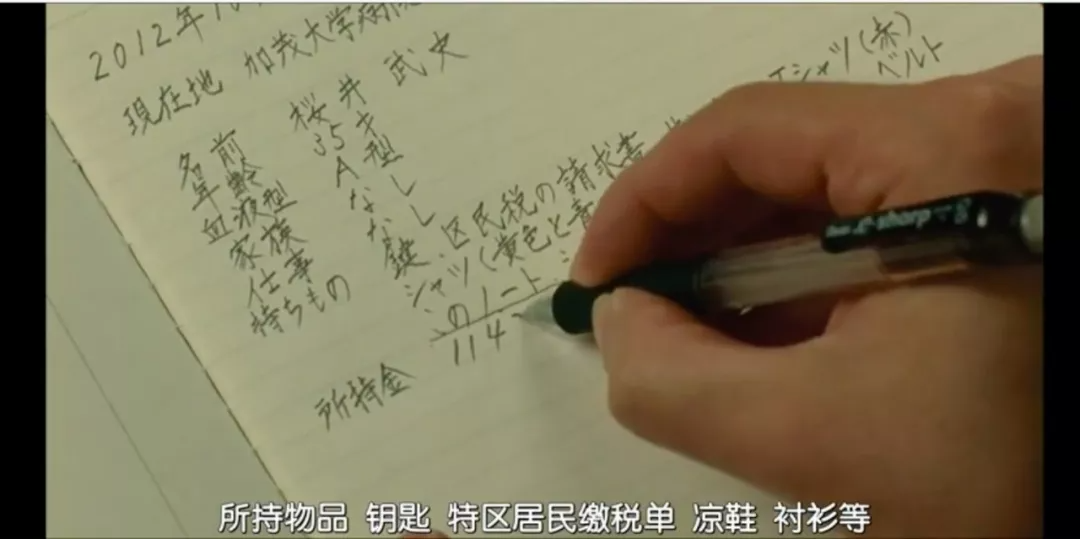 2012年10
現在地 加茂大学病院
名前 桜井 武史
年齢 35才
血液型 A型
家族 なし
仕事 なし
持ちもの 鍵、区民税の請求書 Tシャツ(赤)
シャツ(黄色と青 ベルト
のノート
所持金 114
e-sharp
所持物品 钥匙 特区居民缴税单 凉鞋 衬衫等